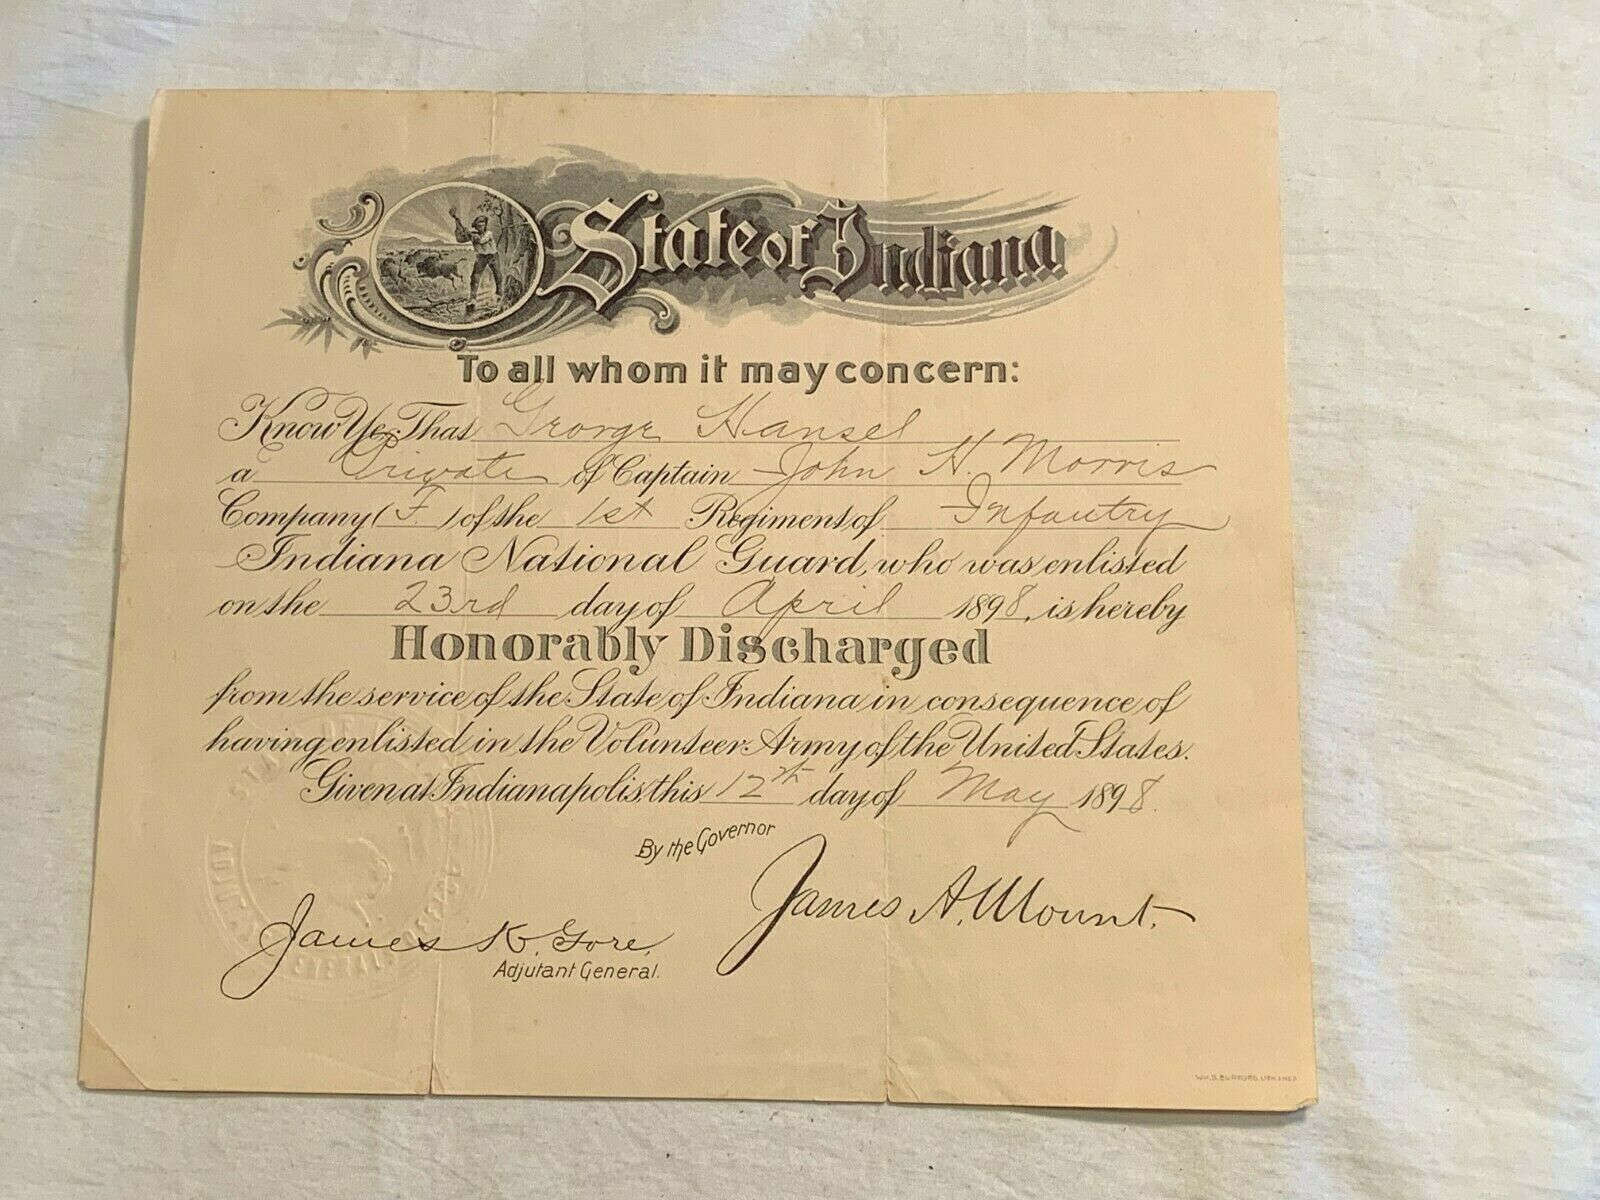 State of Indiana
To all whom it may concern:
Know Ye, That George Hansel
a Private of Captain John H. Morris
Company (F.) of the 1st Regiment of Infantry
Indiana National Guard, who was enlisted
on the 23rd day of April 1898, is hereby
Honorably Discharged
from the service of the State of Indiana in consequence of
having enlisted in the Volunteer Army of the United States.
Given at Indianapolis, this 12th day of May 1898.
By the Governor
James A. Mount.
James K. Gore,
Adjutant General.
WM. B. BURFORD, LITH. INDPLS